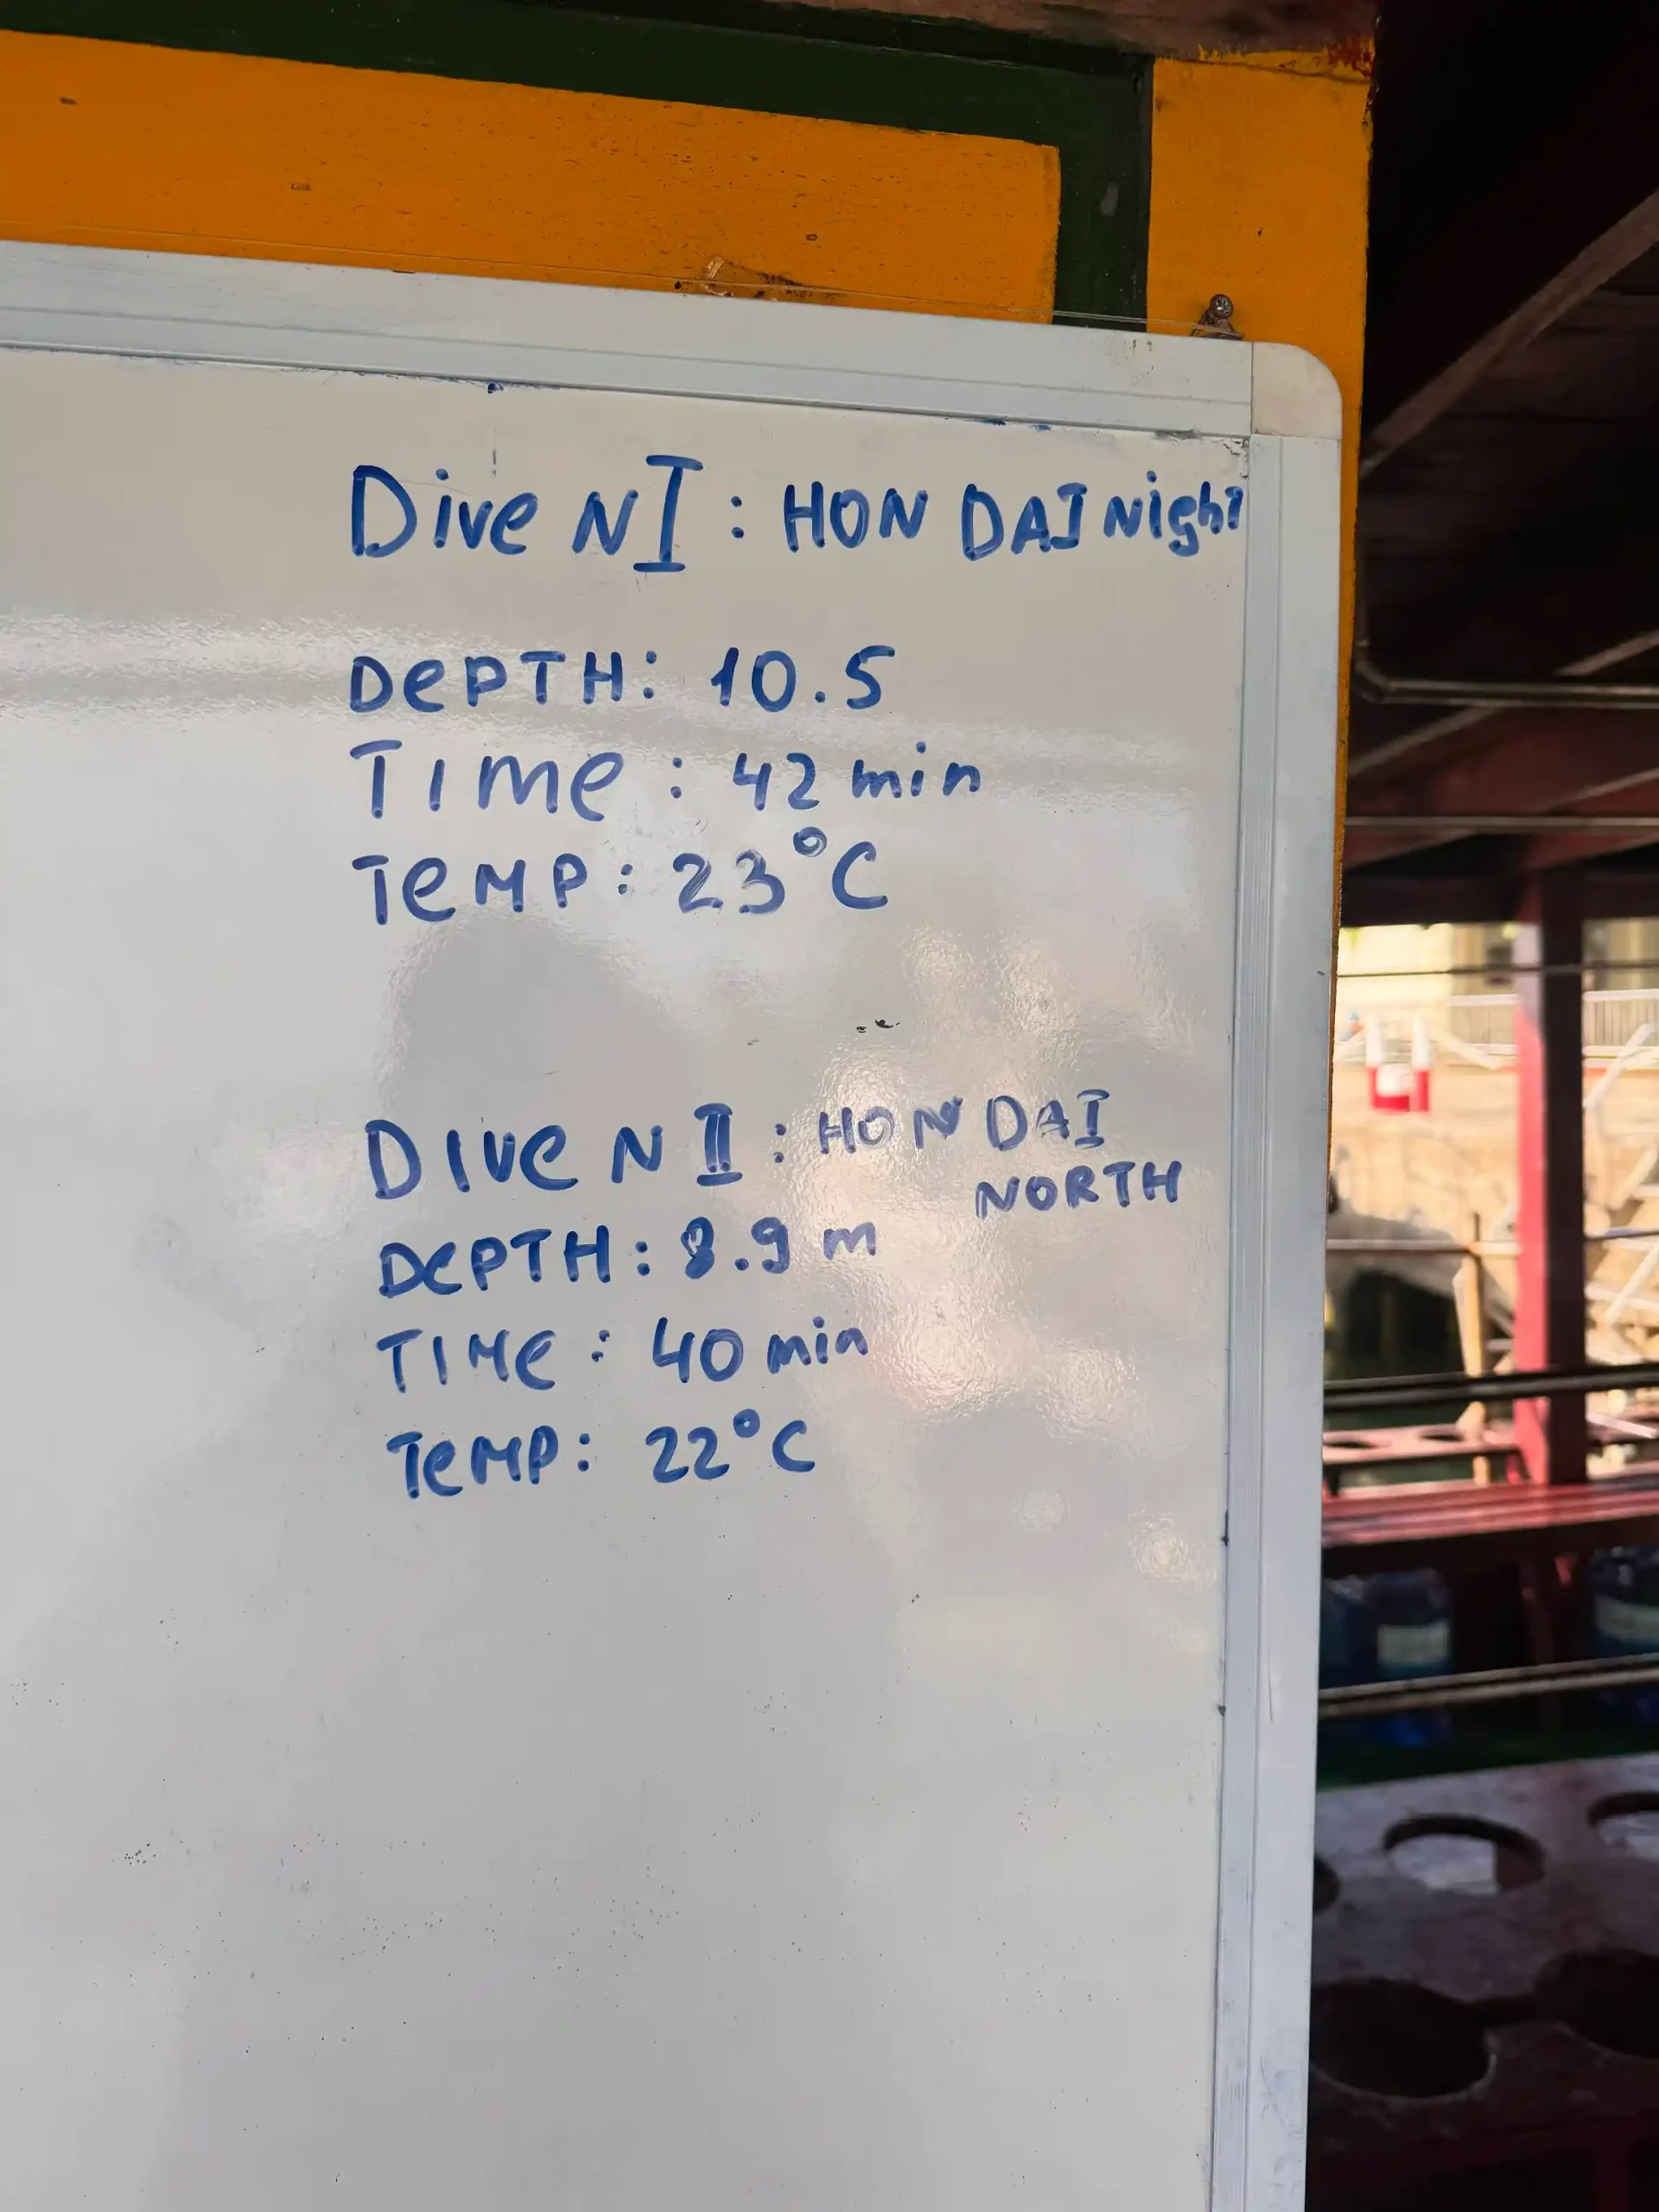 Dive N I : HON DAI Night
DePTH: 10.5
TIMe : 42 min
TeMP: 23°C
DIVe N II : HON DAI
NORTH
DePTH: 8.9 m
TIMe : 40 min
TeMP: 22°C